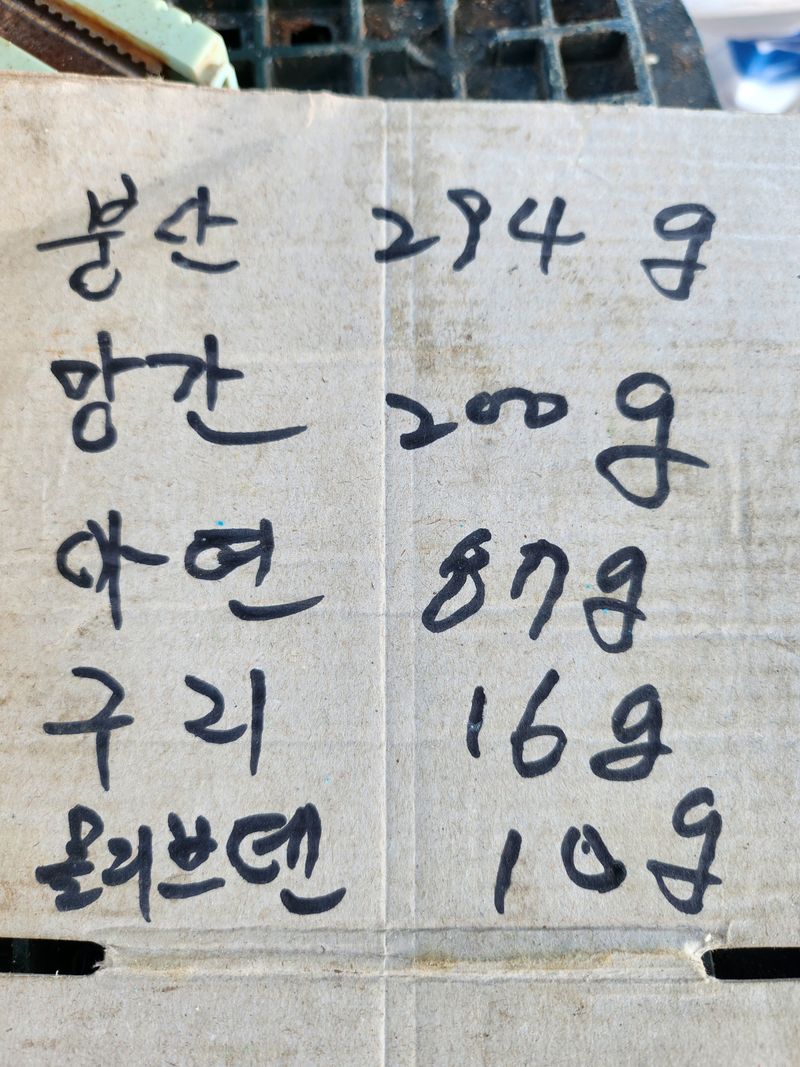 붕산 294 g
망간 200 g
아연 87g
구리 16g
몰리브덴 10g